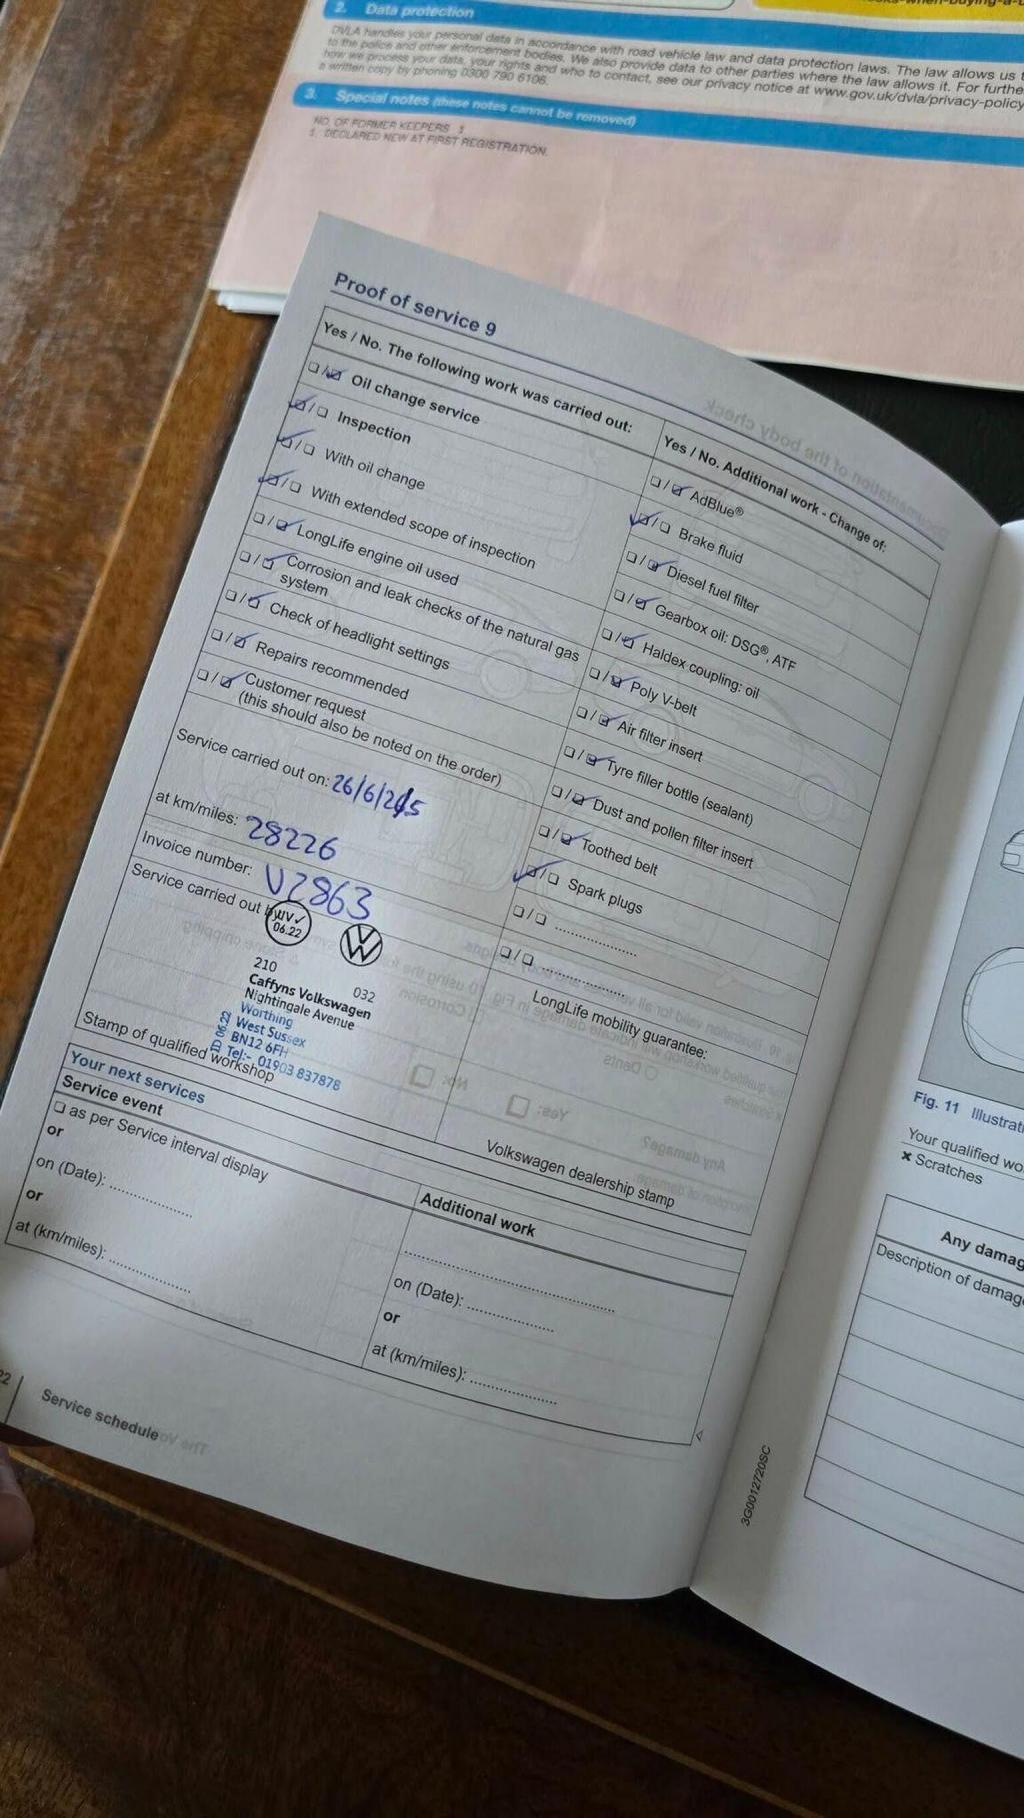 2. Data protection
DVLA handles your personal data in accordance with road vehicle law and data protection laws. The law allows us
to the police and other enforcement bodies. We also provide data to other parties where the law allows it. For furthe
how we process your data, your rights and who to contact, see our privacy notice at www.gov.uk/dvla/privacy-policy
a written copy by phoning 0300 790 6106.
3. Special notes (these notes cannot be removed)
NO. OF FORMER KEEPERS 1
1. DECLARED NEW AT FIRST REGISTRATION.
Proof of service 9
Yes / No. The following work was carried out:
Oil change service
Inspection
With oil change
With extended scope of inspection
LongLife engine oil used
Corrosion and leak checks of the natural gas
system
Check of headlight settings
Repairs recommended
Customer request
(this should also be noted on the order)
Yes / No. Additional work - Change of:
AdBlue®
Brake fluid
Diesel fuel filter
Gearbox oil: DSG®, ATF
Haldex coupling: oil
Poly V-belt
Air filter insert
Tyre filler bottle (sealant)
Dust and pollen filter insert
Toothed belt
Spark plugs
Service carried out on: 26/6/25
at km/miles: 28226
Invoice number: V2863
Service carried out by:
06.22
210 032
Caffyns Volkswagen
Nightingale Avenue
Worthing
West Sussex
BN12 6FH
Tel:- 01903 837878
Stamp of qualified workshop
LongLife mobility guarantee:
Volkswagen dealership stamp
Your next services
Service event
as per Service interval display
or
on (Date): ....................
or
at (km/miles): ....................
Additional work
on (Date): ....................
or
at (km/miles): ....................
22
Service schedule
3G0012720SC
Fig. 11 Illustrati
Your qualified wo
× Scratches
Any damag
Description of damage